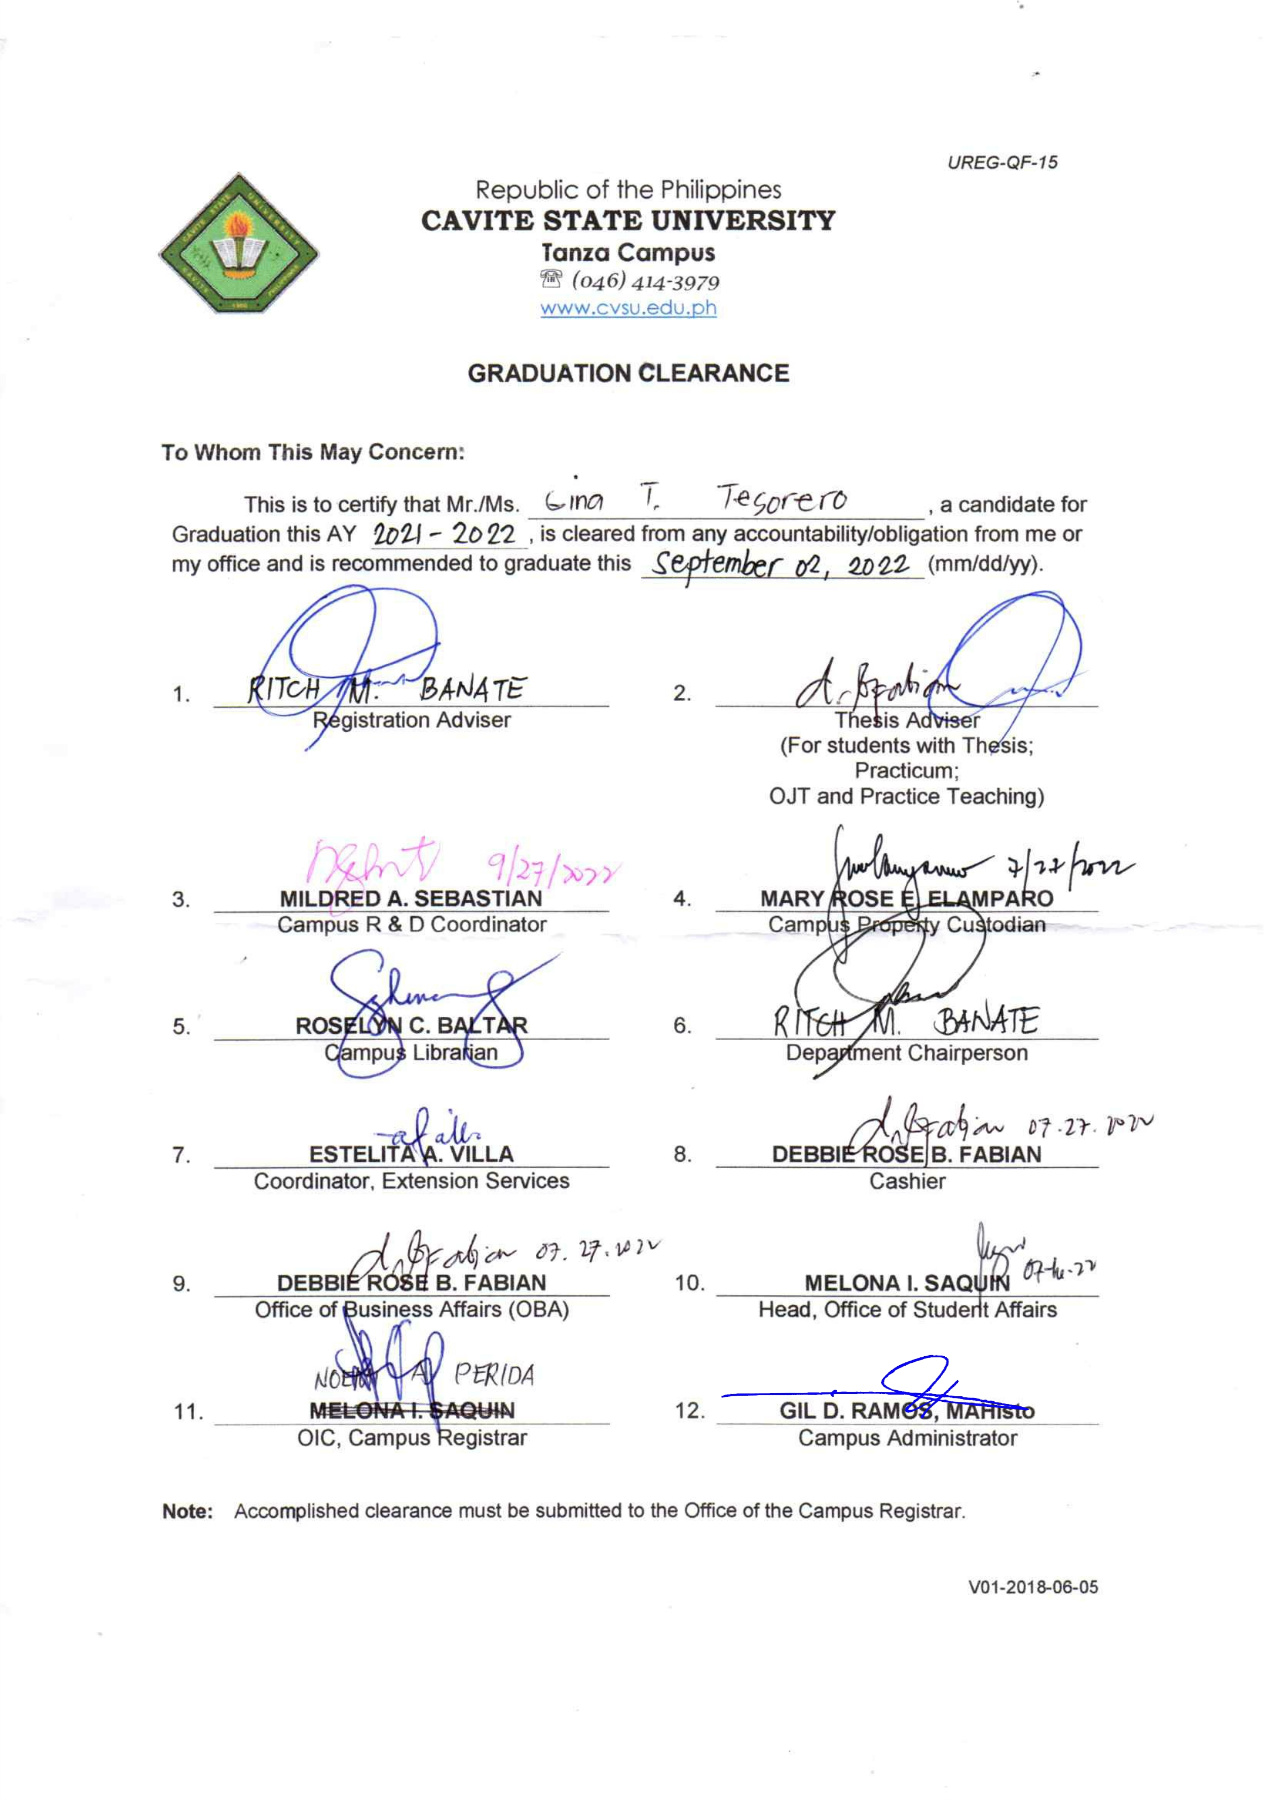 UREG-QF-15
Republic of the Philippines
CAVITE STATE UNIVERSITY
Tanza Campus
☏ (046) 414-3979
www.cvsu.edu.ph
GRADUATION CLEARANCE
To Whom This May Concern:
This is to certify that Mr./Ms. Gina T. Tesorero, a candidate for
Graduation this AY 2021 - 2022, is cleared from any accountability/obligation from me or
my office and is recommended to graduate this September 02, 2022 (mm/dd/yy).
1. RITCH M. BANATE
Registration Adviser
2.
Thesis Adviser
(For students with Thesis;
Practicum;
OJT and Practice Teaching)
9/27/2022
3. MILDRED A. SEBASTIAN
Campus R & D Coordinator
7/27/2022
4. MARY ROSE E. ELAMPARO
Campus Property Custodian
5. ROSELYN C. BALTAR
Campus Librarian
6. RITCH M. BANATE
Department Chairperson
7. ESTELITA A. VILLA
Coordinator, Extension Services
07.27.2022
8. DEBBIE ROSE B. FABIAN
Cashier
07.27.2022
9. DEBBIE ROSE B. FABIAN
Office of Business Affairs (OBA)
10. MELONA I. SAQUIN
Head, Office of Student Affairs
PERIDA
11. MELONA I. SAQUIN
OIC, Campus Registrar
12. GIL D. RAMOS, MAHisto
Campus Administrator
Note: Accomplished clearance must be submitted to the Office of the Campus Registrar.
V01-2018-06-05